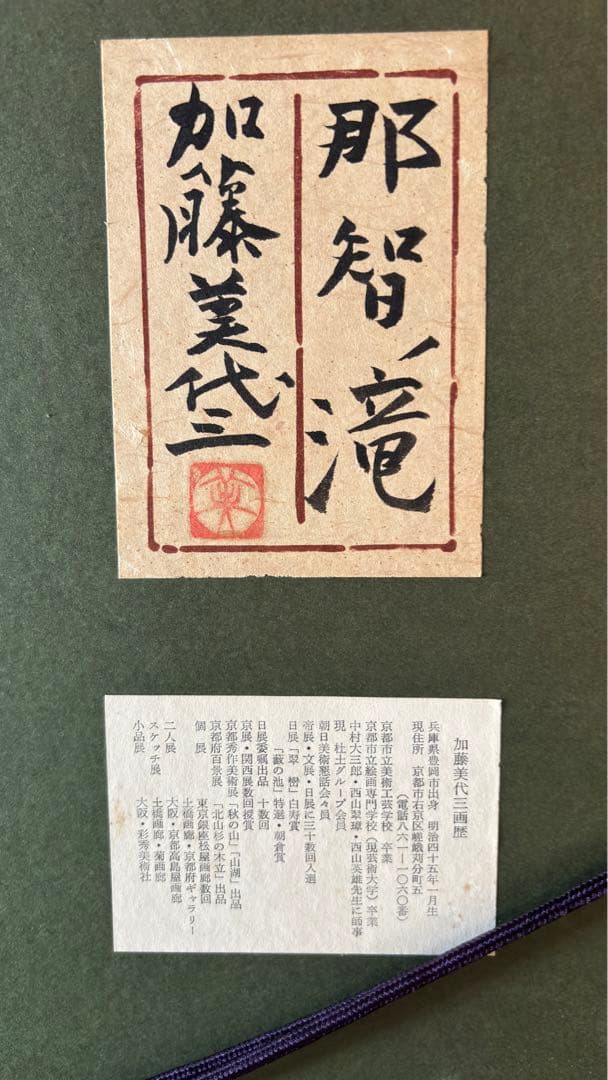 那智ノ滝
加藤美代三
加藤美代三画歴
兵庫県豊岡市出身　明治四十五年一月生
現住所　京都市右京区嵯峨苅分町五
（電話八六一ー一〇六〇番）
京都市立美術工芸学校　卒業
京都市立絵画専門学校（現芸術大学）卒業
中村大三郎・西山翠嶂・西山英雄先生に師事
現　杜土グループ会員
朝日美術懇話会々員
帝展・文展・日展に三十数回入選
日展「翠　巒」白寿賞
「藪の池」特選・朝倉賞
日展委嘱出品　十数回
京展・関西展数回授賞
京都秀作美術展「秋の山」「山湖」出品
京都府百景展　「北山杉の木立」出品
個　展　東京銀座松屋画廊数回
土橋画廊・京都府ギャラリー
大阪・京都高島屋画廊
二人展　土橋画廊・菊画廊
スケッチ展　大阪・彩秀美術社
小品展